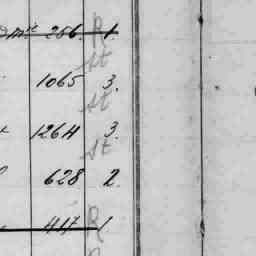 286. R 1.
st
1065 3.
st
1264 3.
st
628 2.
417 R 1
R